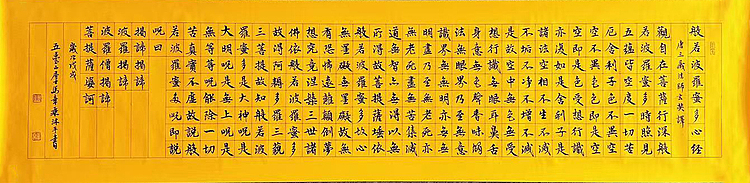 般若波羅蜜多心經
唐三藏法師玄奘譯
觀自在菩薩行深般
若波羅蜜多時照見
五蘊皆空度一切苦
厄舍利子色不異空
空不異色色即是空
空即是色受想行識
亦復如是舍利子是
諸法空相不生不滅
不垢不淨不增不減
是故空中無色無受
想行識無眼耳鼻舌
身意無色聲香味觸
法無眼界乃至無意
識界無無明亦無無
明盡乃至無老死亦
無老死盡無苦集滅
道無智亦無得以無
所得故菩提薩埵依
般若波羅蜜多故心
無罣礙無罣礙故無
有恐怖遠離顛倒夢
想究竟涅槃三世諸
佛依般若波羅蜜多
故得阿耨多羅三藐
三菩提故知般若波
羅蜜多是大神呪是
大明呪是無上呪是
無等等呪能除一切
苦真實不虛故說般
若波羅蜜多呪即說
呪曰
揭諦揭諦
波羅揭諦
波羅僧揭諦
菩提薩婆訶
歲次戊戌